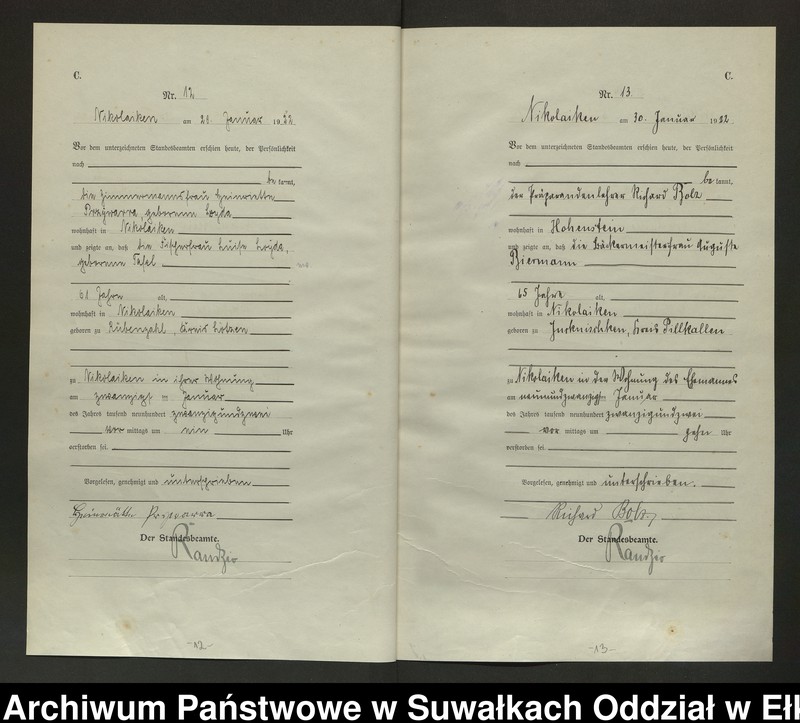 C.
Nr. 12
Nikolaiken am 21. Januar 1922
Vor dem unterzeichneten Standesbeamten erschien heute, der Persönlichkeit
nach
be kannt,
die Zimmermannsfrau Heinriette
geborene Loyda
wohnhaft in Nikolaiken
und zeigte an, daß die Fischerfrau Luise Loyda,
geborene
61 Jahre alt,
wohnhaft in Nikolaiken
geboren zu Rübenzahl, Kreis Lötzen
zu Nikolaiken in ihrer Wohnung
am zwanzigst en Januar
des Jahres tausend neunhundert zwanzigundzwei
vor mittags um ein Uhr
verstorben sei.
Vorgelesen, genehmigt und unterschrieben
Der Standesbeamte.
Randzio
-12-
C.
Nr. 13.
Nikolaiken am 30. Januar 1922.
Vor dem unterzeichneten Standesbeamten erschien heute, der Persönlichkeit
nach
be kannt,
der Präparandenlehrer Richard Bolz
wohnhaft in Hohenstein
und zeigte an, daß die Bäckermeisterfrau Auguste
Biermann
65 Jahre alt,
wohnhaft in Nikolaiken
geboren zu Kreis Pillkallen
zu Nikolaiken in der Wohnung des Ehemannes
am neunundzwanzigsten Januar
des Jahres tausend neunhundert zwanzigundzwei
vor mittags um zehn Uhr
verstorben sei.
Vorgelesen, genehmigt und unterschrieben.
Richard Bolz
Der Standesbeamte.
Randzio
-13-
Archiwum Państwowe w Suwałkach Oddział w Eł